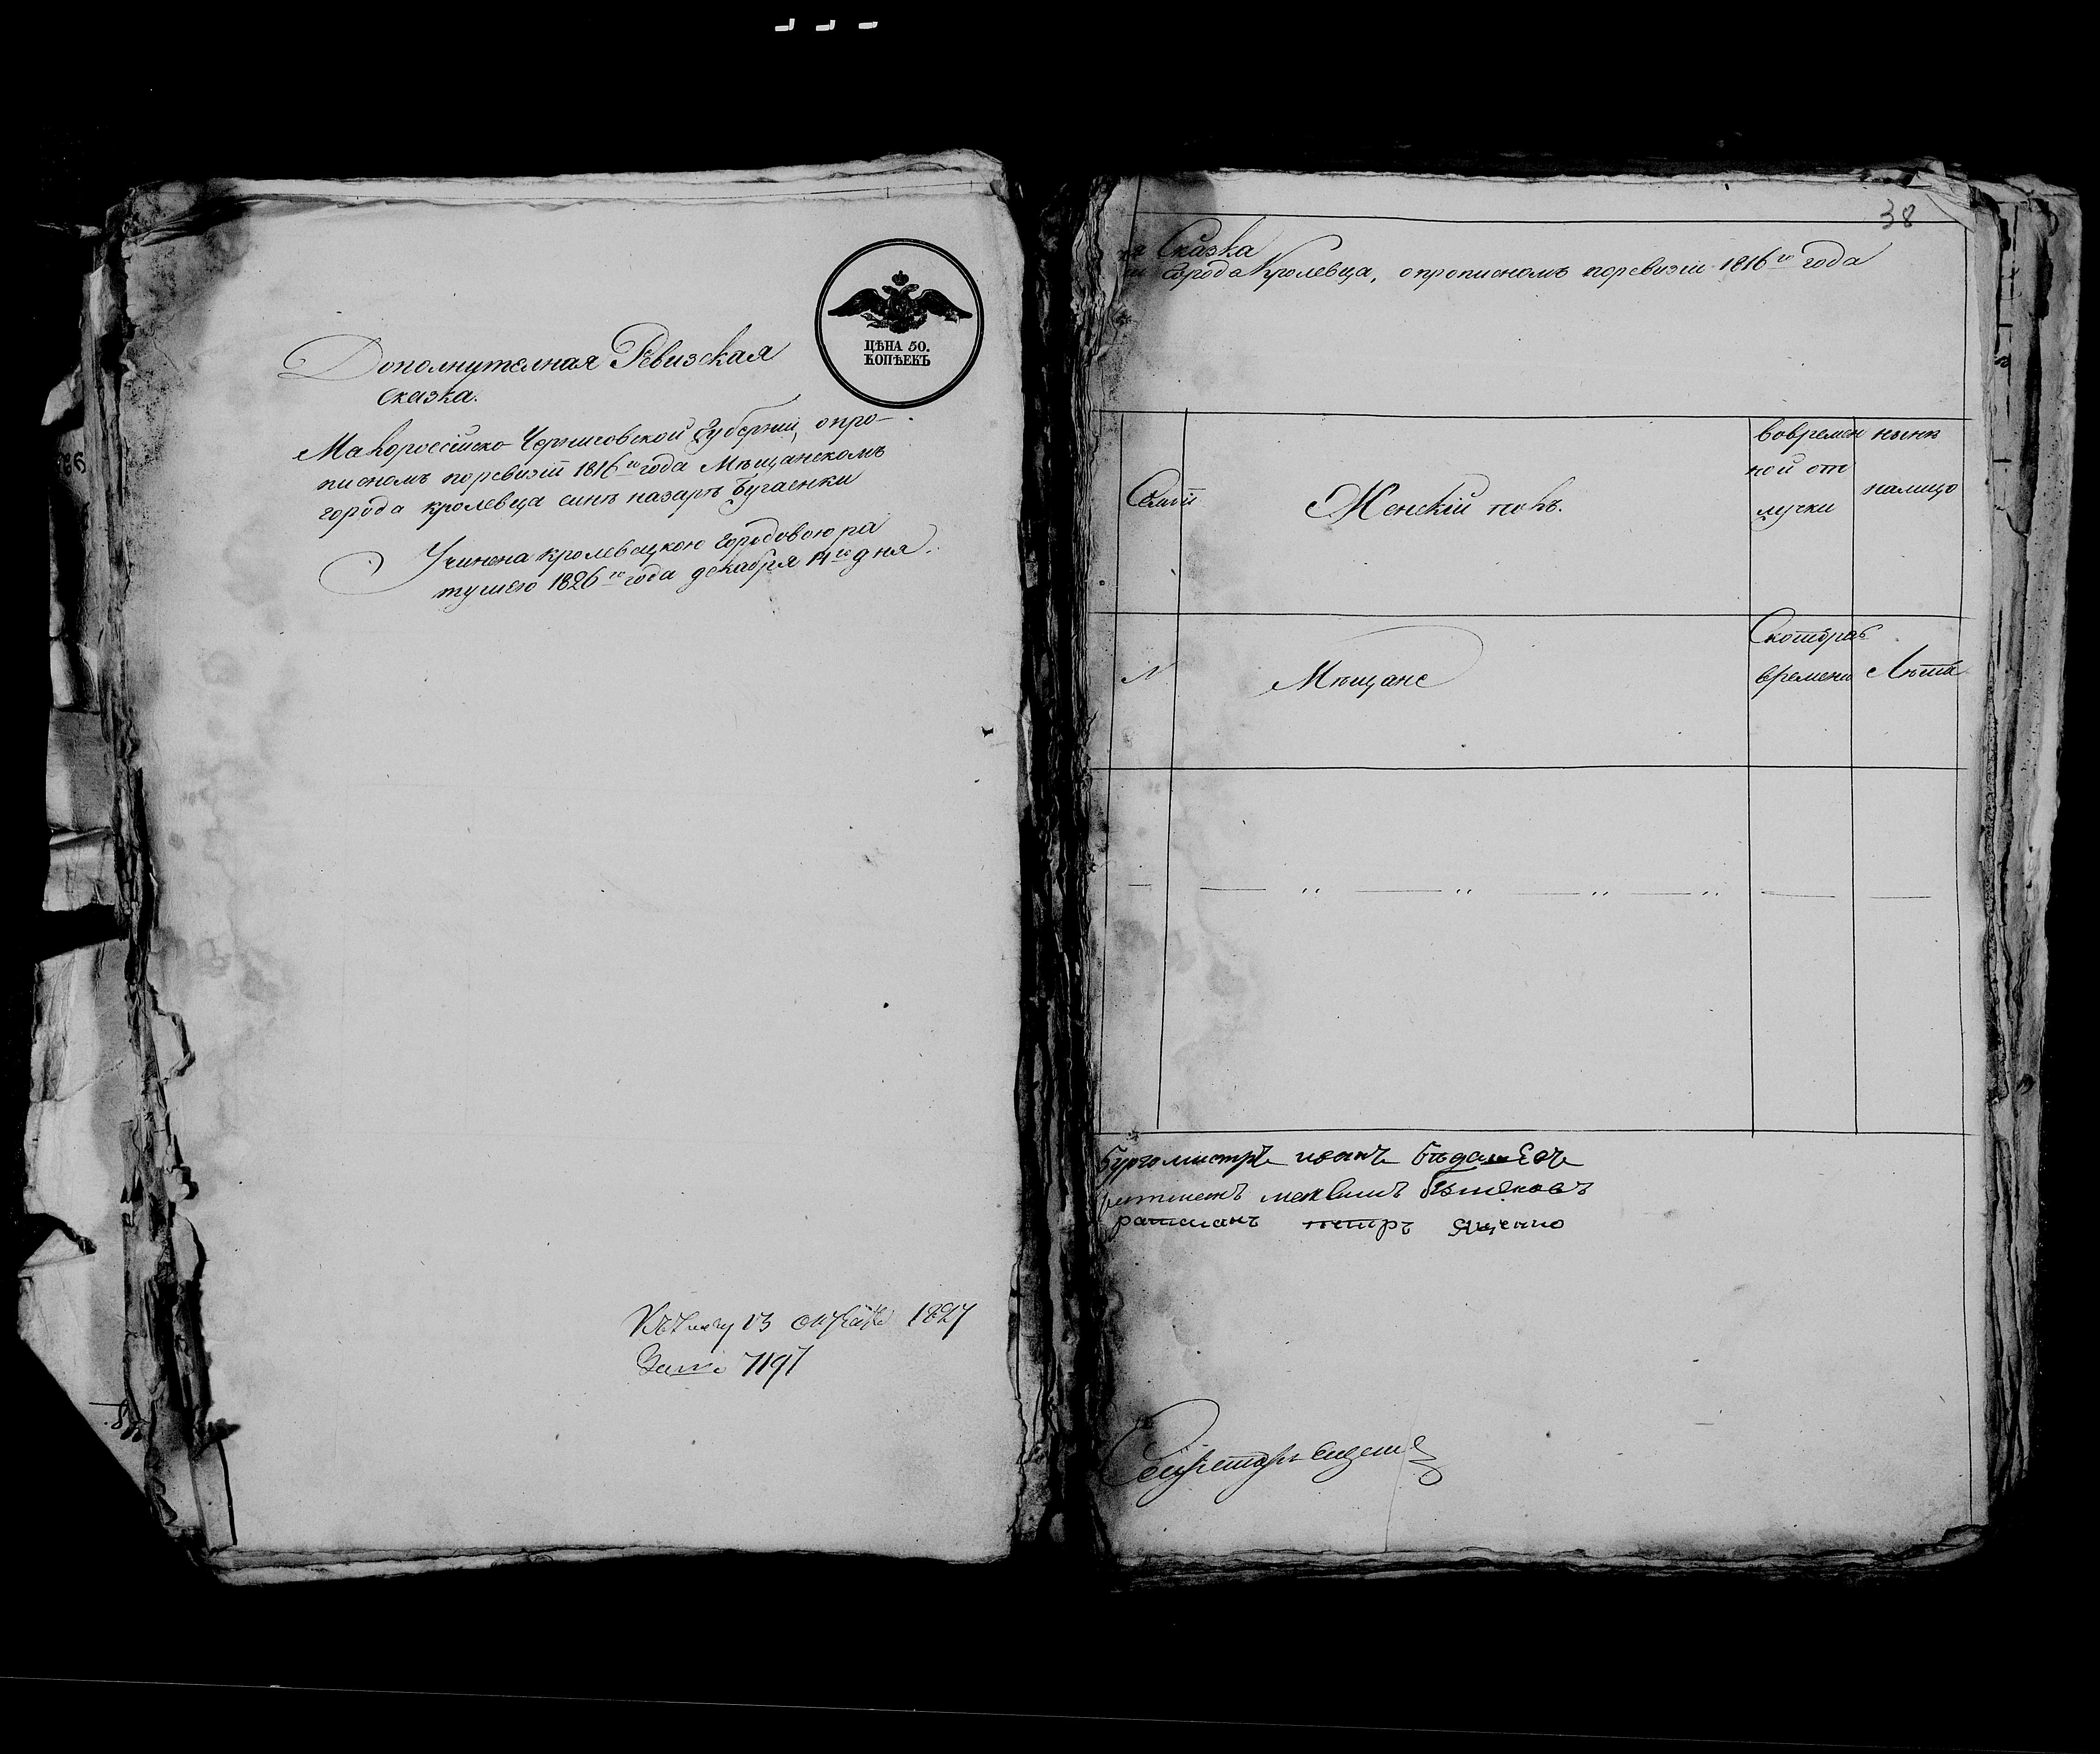 ЦѢНА 50.
КОПѢЕКЪ
Дополнителная Ревизская
сказка.
Малороссійско Черниговской Губерніи, опро-
писномъ поревизіи 1816го года Мѣщанскомъ
города кролевца синѣ назарѣ Бугаенки
Учинена кролевецкою городовою ра
тушею 1826го года декабря 14го дня.
13 1827
7197
38
Сказка
города Кролевца, опрописномъ поревизіи 1816го года
Семіи
Женскій полъ.
вовремен
ной от
лучки
нынѣ
налицо
№
Мѣщане
Скотораго
времени
Лѣта
бургомистръ иванъ
ратманъ максимъ
ратманъ петръ Яценко
Секретарь